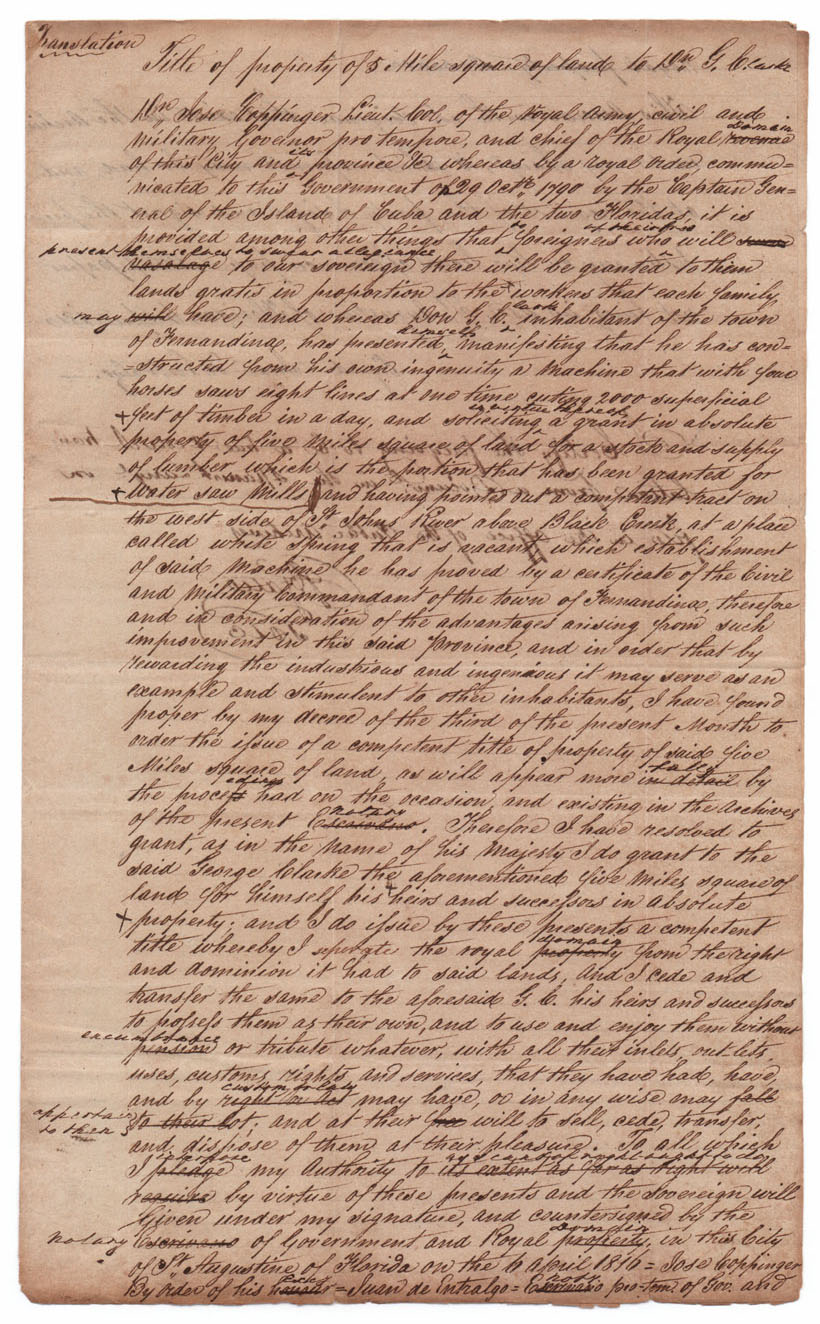 Translation
Title of property of 5 Mile square of land to Don G. Clarke
Don Jose Coppinger Lieut. Col. of the Royal Army, civil and
Military Governor pro tempore, and chief of the Royal domain revenue
of this City and its province &c whereas by a royal order, commu=
nicated to this Government of 29 Octr. 1790 by the Captain Gen=
eral of the Island of Cuba and the two Floridas, it is
provided among other things that to foreigners of their free who will swear
present themselves to swear allegiance
vasalage to our sovereign there will be granted to them
lands gratis in proportion to the workers that each family,
may will have; and whereas Don G. C. Clarke inhabitant of the town
of Fernandina, has presented himself, manifesting that he has con=
=structed from his own ingenuity a Machine that with four
horses saws eight lines at one time cuting 2000 superficial
feet of timber in a day, and soliciting a grant in absolute
property of five Miles square of land for a stock and supply
of lumber, which is the portion that has been granted for
Water Saw Mills and having pointed out a competent tract on
the west side of St. Johns River above Black Creek, at a place
called white Spring that is vacant which establishment
of said Machine he has proved by a certificate of the Civil
and Military Commandant of the town of Fernandina, therefore
and in consideration of the advantages arising from such
improvement in this said Province, and in order that by
rewarding the industrious and ingenious it may serve as an
example and stimulent to other inhabitants, I have found
proper by my decree of the third of the present Month to
order the issue of a competent title of property of said five
Miles square of land, as will appear more fully in detail by
the proceedings had on the occasion, and existing in the Archives
of the present notary Escrivano. Therefore I have resolved to
grant, as in the name of his Majesty I do grant to the
said George Clarke the aforementioned five Miles square of
land for himself his heirs and successors in absolute
property; and I do issue by these presents a competent
title whereby I seperate the royal domain property from the right
and dominion it had to said lands, And I cede and
transfer the same to the aforesaid G. C. his heirs and successors
to possess them as their own, and to use and enjoy them without
encumbrance
pension or tribute whatever, with all their inlets, outlets,
uses, customs, rights and services, that they have had, have,
and by custom or law right or act may have, or in any wise may fall
appertain to them
to their lot; and at their free will to sell, cede, transfer,
and dispose of them at their pleasure. To all which
I interpose pledge my authority to its extent as far as right will
require by virtue of these presents and the sovereign will
Given under my signature, and countersigned by the
notary Escrivano of Government and Royal domain property, in this City
of St. Augustine of Florida on the 6 april 1816 = Jose Coppinger
By order of his = Juan de Entralgo = notary Escrivano pro-tem. of Gov. and